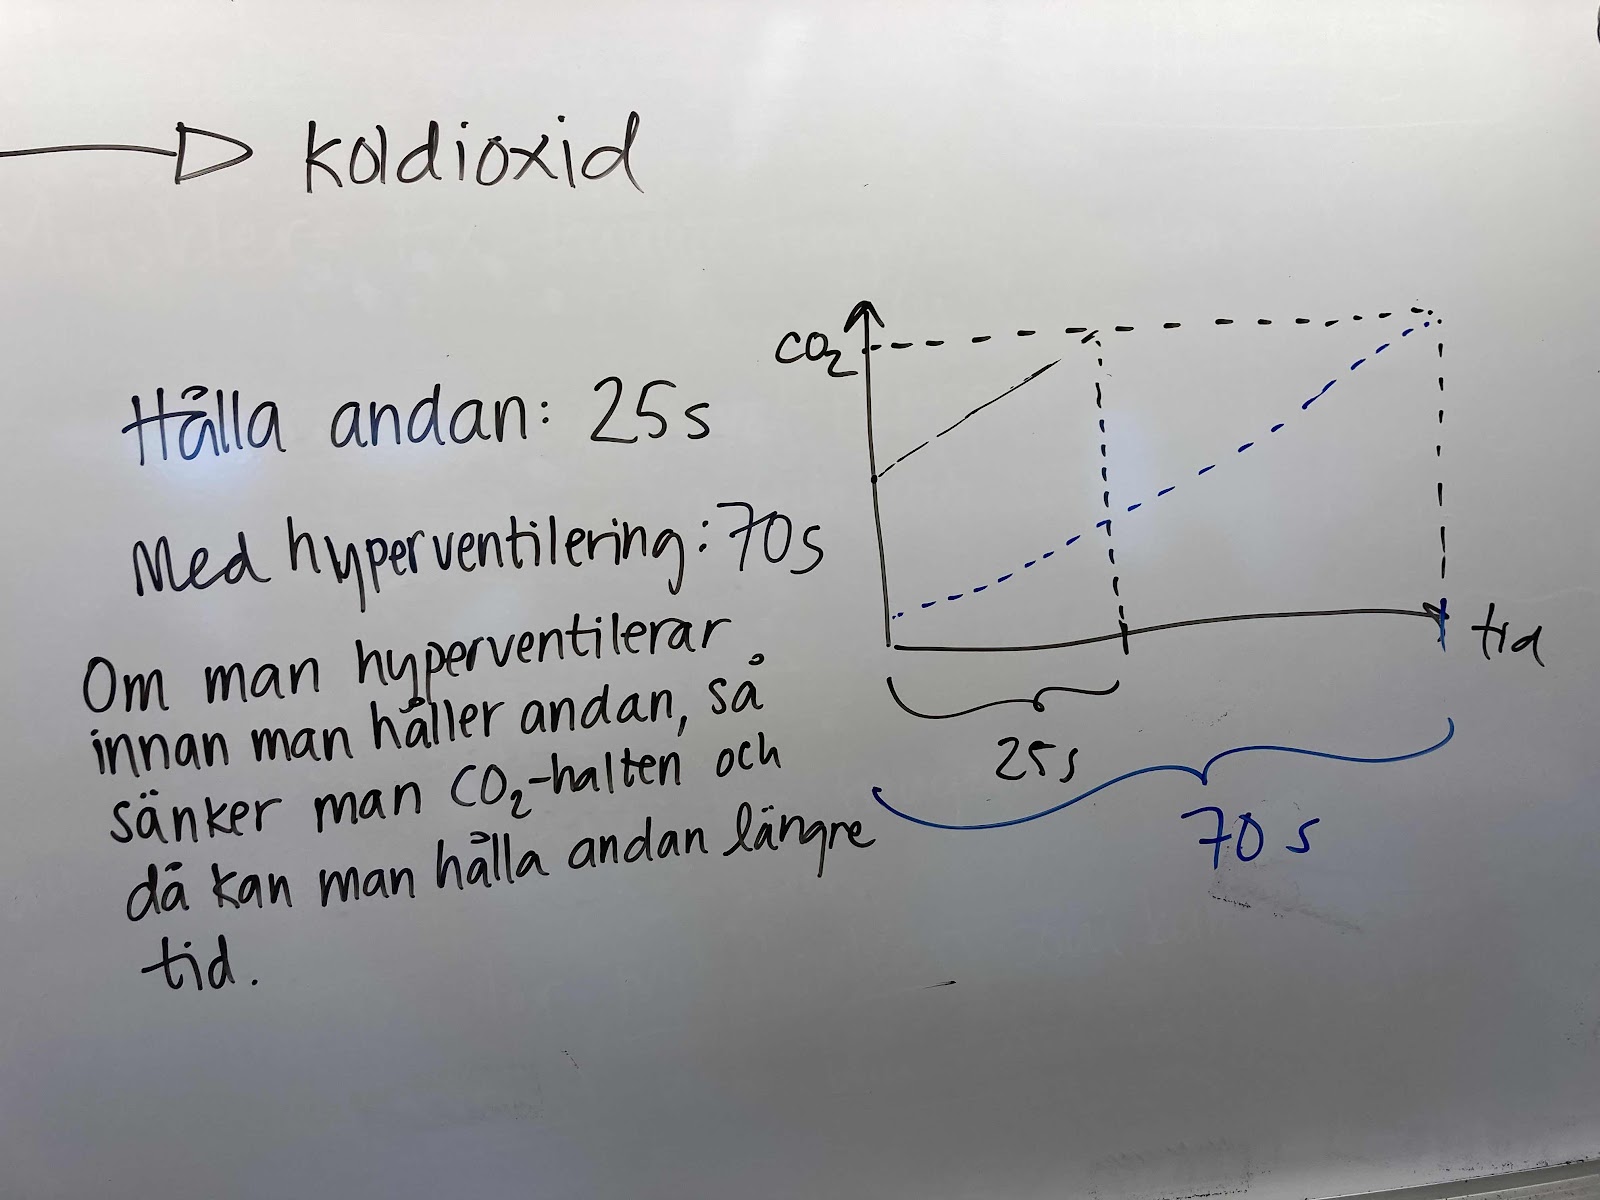 koldioxid
Hålla andan: 25s
Med hyperventilering: 70s
Om man hyperventilerar
innan man håller andan, så
sänker man CO₂-halten och
då kan man hålla andan längre
tid.
CO₂
tid
25s
70 s